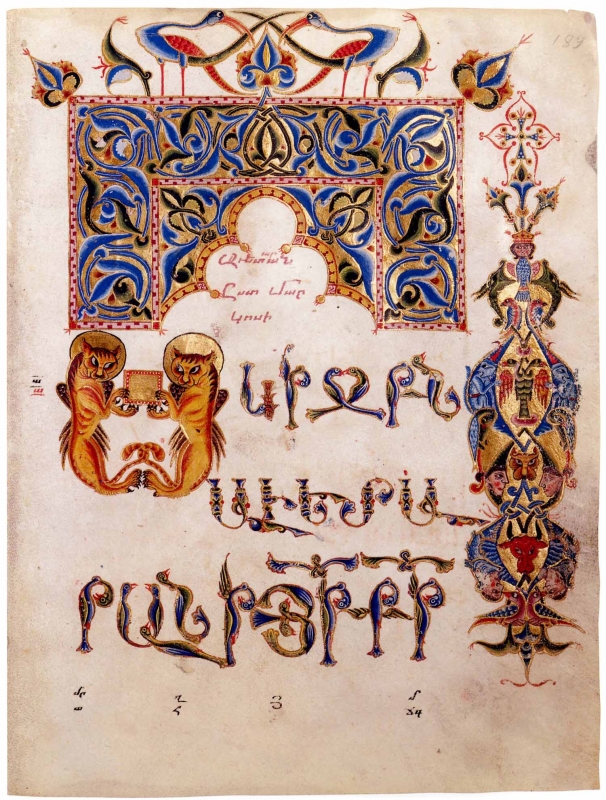 189
Աւետարան
Ըստ Մար
կոսի
Սկիզբն
աւետա
րանի ՅԻ ՔԻ